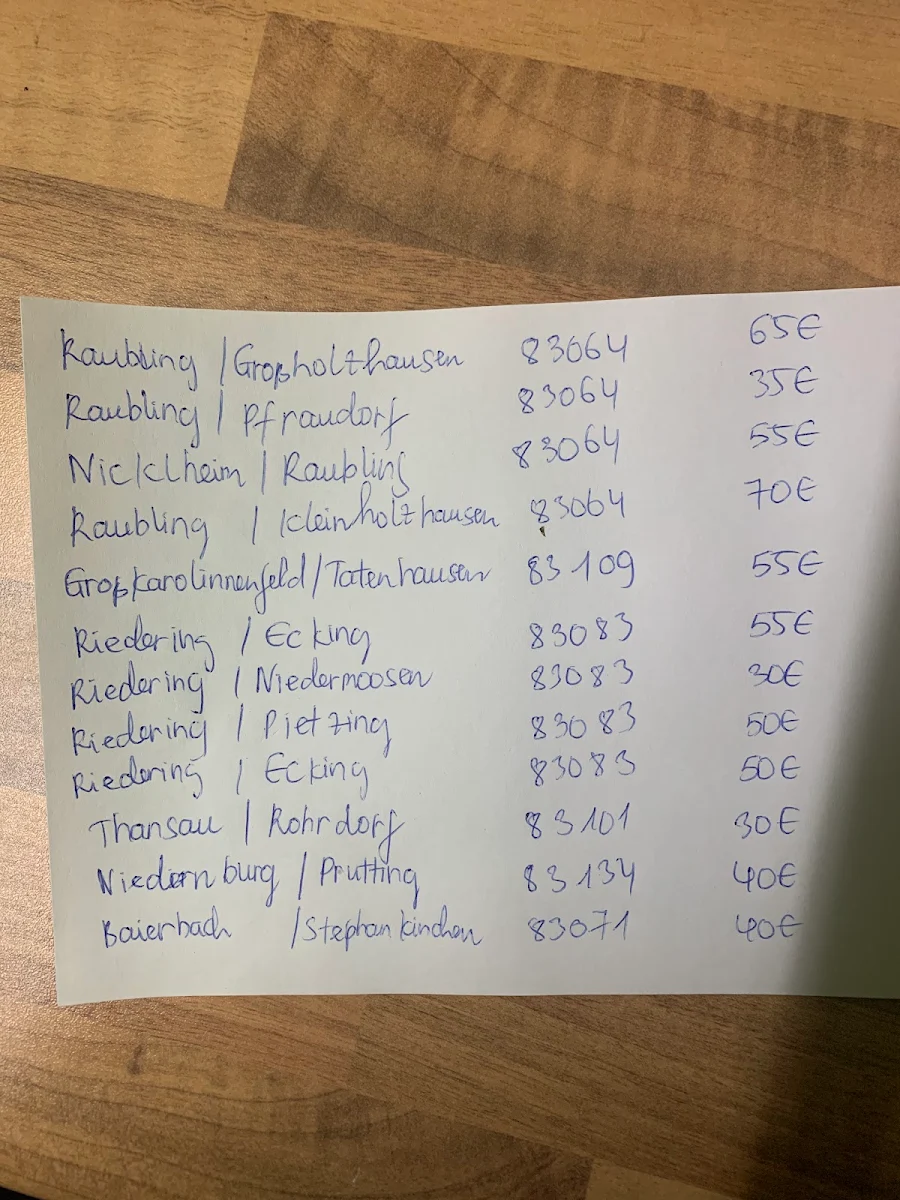 Raubling / Großholzhausen 83064 65€
Raubling / Pfraudorf 83064 35€
Nicklheim / Raubling 83064 55€
Raubling / Kleinholzhausen 83064 70€
Großkarolinnenfeld / Tatenhausen 83109 55€
Riedering / Ecking 83083 55€
Riedering / Niedermoosen 83083 30€
Riedering / Pietzing 83083 50€
Riedering / Ecking 83083 50€
Thansau / Rohrdorf 83101 30€
Niedernburg / Prutting 83134 40€
Baierbach / Stephankirchen 83071 40€